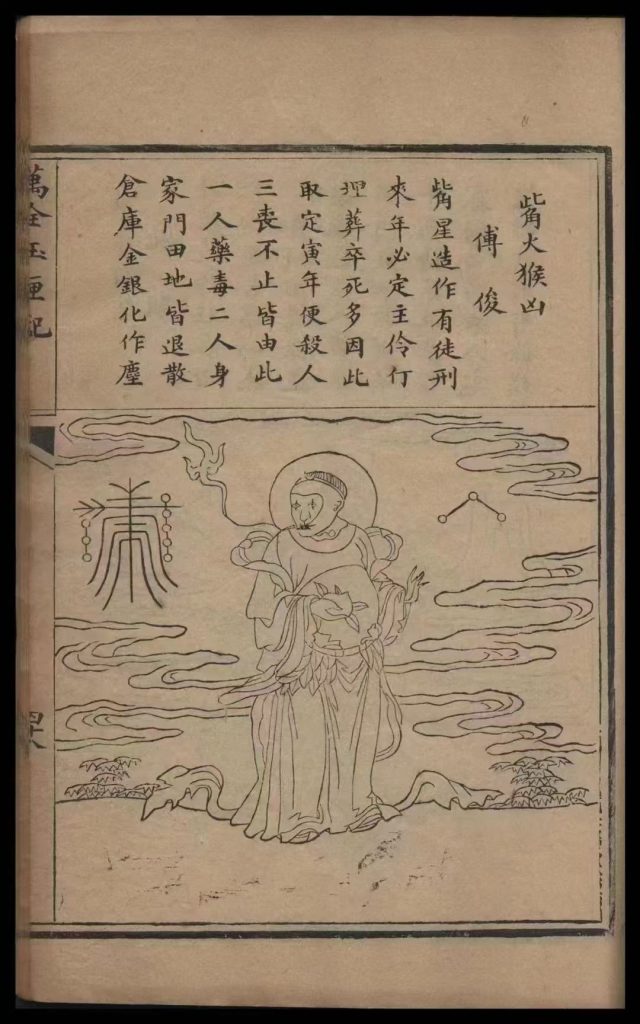 觜火猴凶
傅俊
觜星造作有徒刑
來年必定主伶仃
埋葬卒死多因此
取定寅年便殺人
三喪不止皆由此
一人藥毒二人身
家門田地皆退散
倉庫金銀化作塵
萬全玉匣記